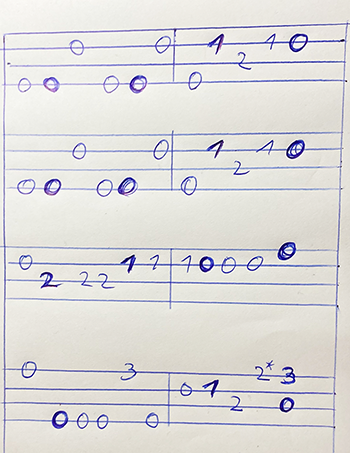 0 0 0 0 0 0 0 1 2 1 0
0 0 0 0 0 0 0 1 2 1 0
0 2 2 2 1 1 1 0 0 0 0
0 0 0 0 3 0 0 1 2 2* 3 0